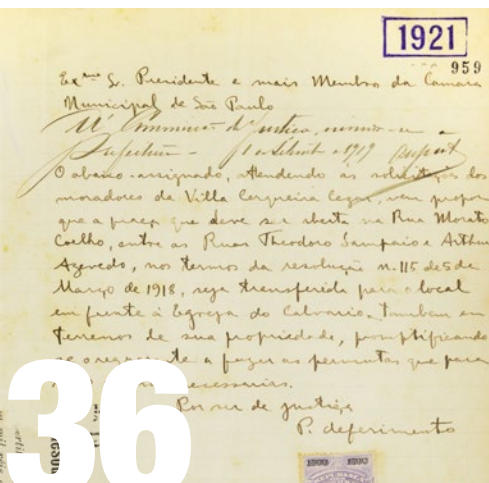 1921
959
Exmo Sr. Presidente e mais Membros da Camara
Municipal de São Paulo
Justiça
1919
O abaixo-assignado, attendendo as solicitações dos
moradores da Villa Cerqueira Cezar, vem propor
que a praça que deve ser aberta na Rua Morato
Coelho, entre as Ruas Theodoro Sampaio e Arthur
Azevedo, nos termos da resolução n. 115 de 5 de
Março de 1918, seja transferida para o local
em frente á Egreja do Calvario, tambem em
terrenos de sua propriedade, promptificando
se o requerente a fazer as permutas que para
necessarias.
Por ser de justiça
P. deferimento
36